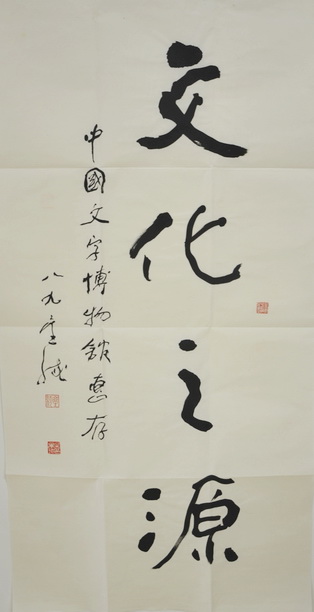 文化之源
中國文字博物館惠存
八九叟